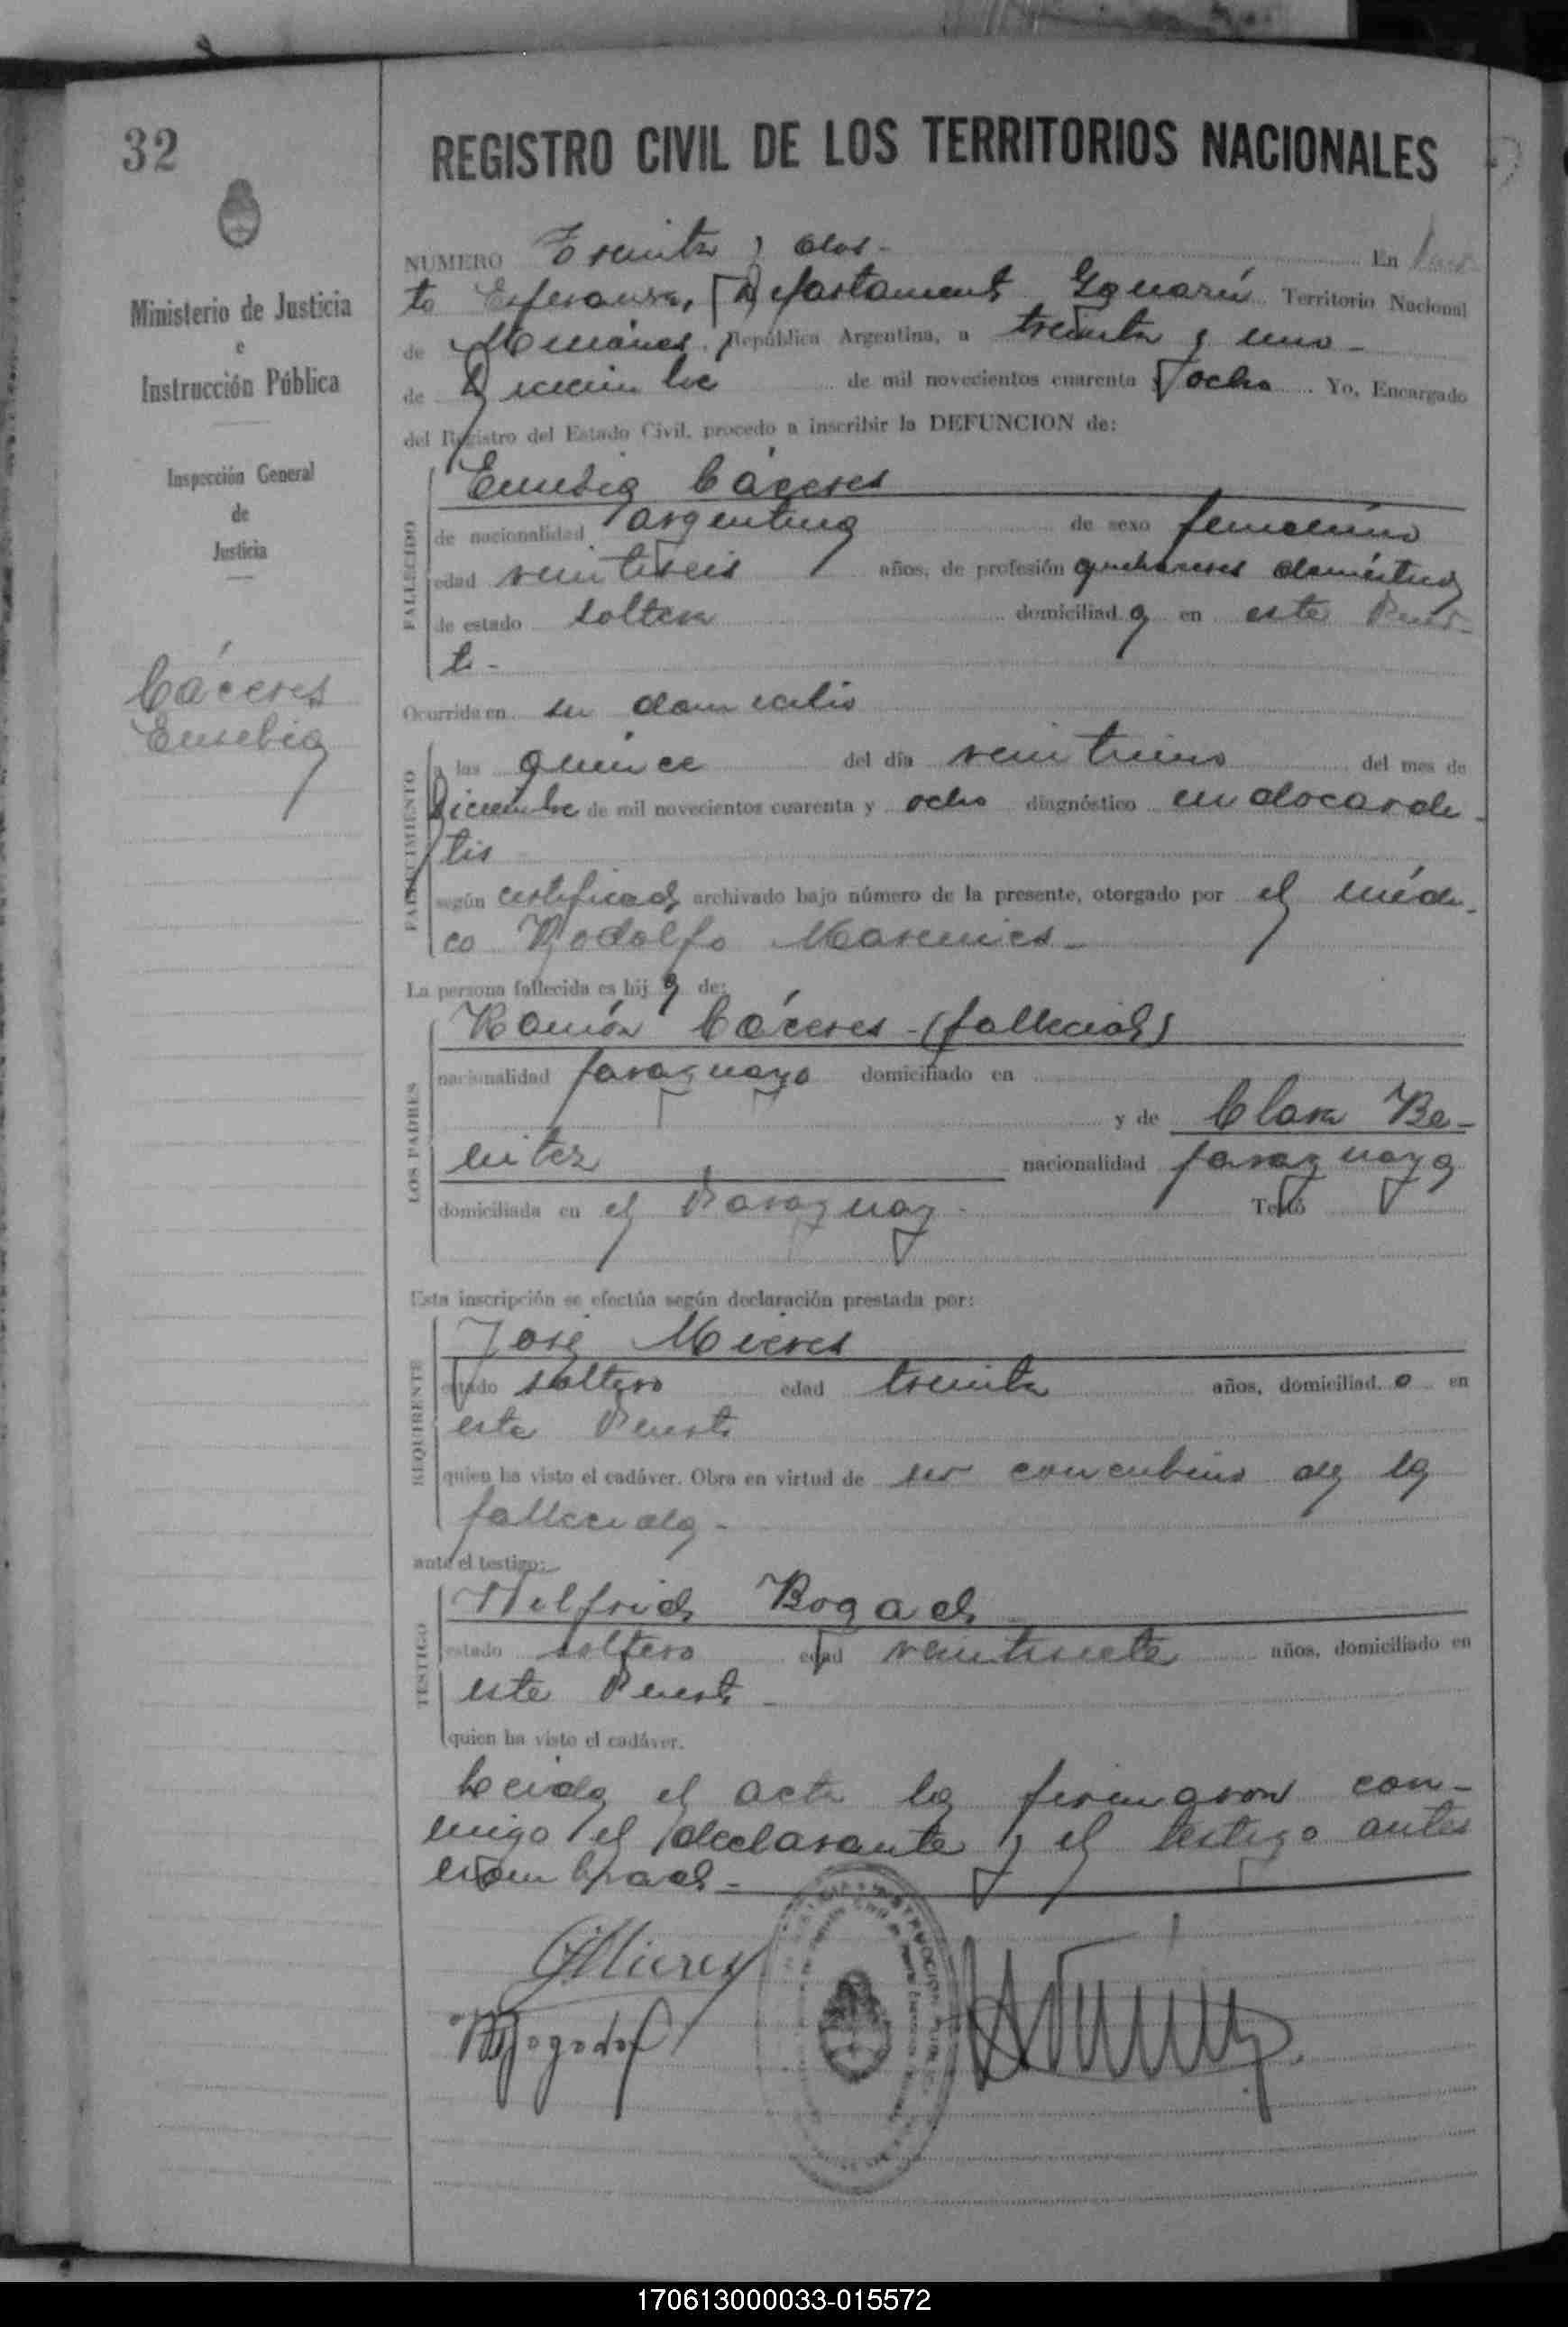 32
REGISTRO CIVIL DE LOS TERRITORIOS NACIONALES
Ministerio de Justicia
e
Instrucción Pública
Inspección General
de
Justicia
Cáceres
Eusebia
NUMERO Treinta y dos - En Puer-
to Esperanza, Departamento Yguazú Territorio Nacional
de Misiones, República Argentina, a treinta y uno -
de Diciembre de mil novecientos cuarenta y ocho Yo, Encargado
del Registro del Estado Civil, procedo a inscribir la DEFUNCION de:
FALLECIDO
Eusebia Cáceres
de nacionalidad argentina de sexo femenino
edad veintiseis años, de profesión quehaceres domésticos
de estado soltera domiciliad a en este Puer-
to -
Ocurrida en su domicilio
FALLECIMIENTO
a las quince del día veintiuno del mes de
Diciembre de mil novecientos cuarenta y ocho diagnóstico endocardi-
tis
según certificado archivado bajo número de la presente, otorgado por el médi-
co Rodolfo
La persona fallecida es hij a de:
LOS PADRES
Ramón Cáceres - (fallecido)
nacionalidad paraguayo domiciliado en
y de Clara Be-
nitez nacionalidad paraguaya
domiciliada en el Paraguay - Testó
Esta inscripción se efectúa según declaración prestada por:
REQUIRENTE
José Mieres
estado soltero edad treinta años, domiciliad o en
este Puerto
quien ha visto el cadáver. Obra en virtud de ser concubino de la
fallecida -
ante el testigo:
TESTIGO
Wilfrido Bogado
estado soltero edad veintisiete años, domiciliado en
este Puerto -
quien ha visto el cadáver.
Leida el acta la firmaron con-
migo el declarante y el testigo antes
nombrado -
JMieres
WBogado
170613000033-015572